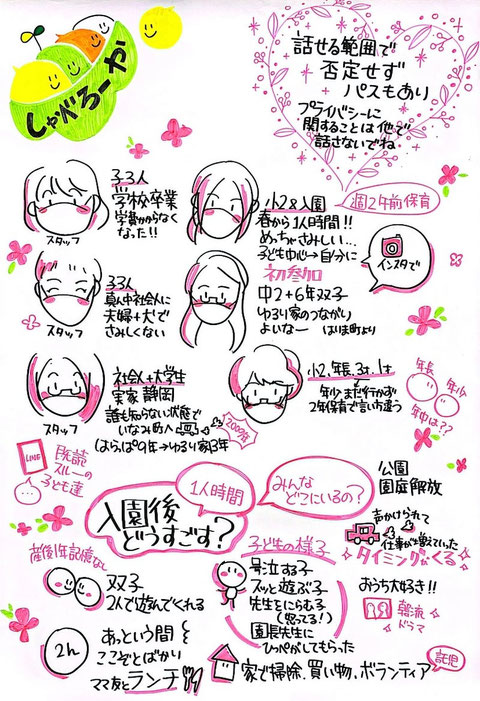 しゃべろーか
話せる範囲で
否定せず
パスもあり
プライバシーに
関することは他で
話さないでね
子3人
学校卒業
学費かからなく
なった!!
スタッフ
小2&入園
週2午前保育
春から1人時間!!
めっちゃさみしい…
子ども中心→自分に
インスタで
33人
真ん中社会人に
夫婦+犬で
さみしくない
スタッフ
初参加
中2+6年双子
ゆるり家のつながり
よいなー
はりま町より
社会人+大学生
実家 静岡
誰も知らない状態で
いなみ町へ
2009年
(はらっぱ9年→ゆるり家3年
スタッフ
小2,年長,3才,1才
年少まだ行かず
2年保育で言い方違う
年長
年少
年中は??
LINE
既読
スルーの
子ども達
入園後
どうすごす?
1人時間
みんな
どこにいるの?
公園
園庭解放
声かけられて
仕事が増えていた
タイミングがくる
産後1年記憶なし
双子
2人で遊んでくれる
子どもの様子
号泣する子
スッと遊ぶ子
先生をにらむ子
(怒ってる!)
園長先生に
ひっぺがしてもらった
おうち大好き!!
韓流
ドラマ
2h
あっという間
ここぞとばかり
ママ友とランチ
家で掃除.買い物.ボランティア
託児